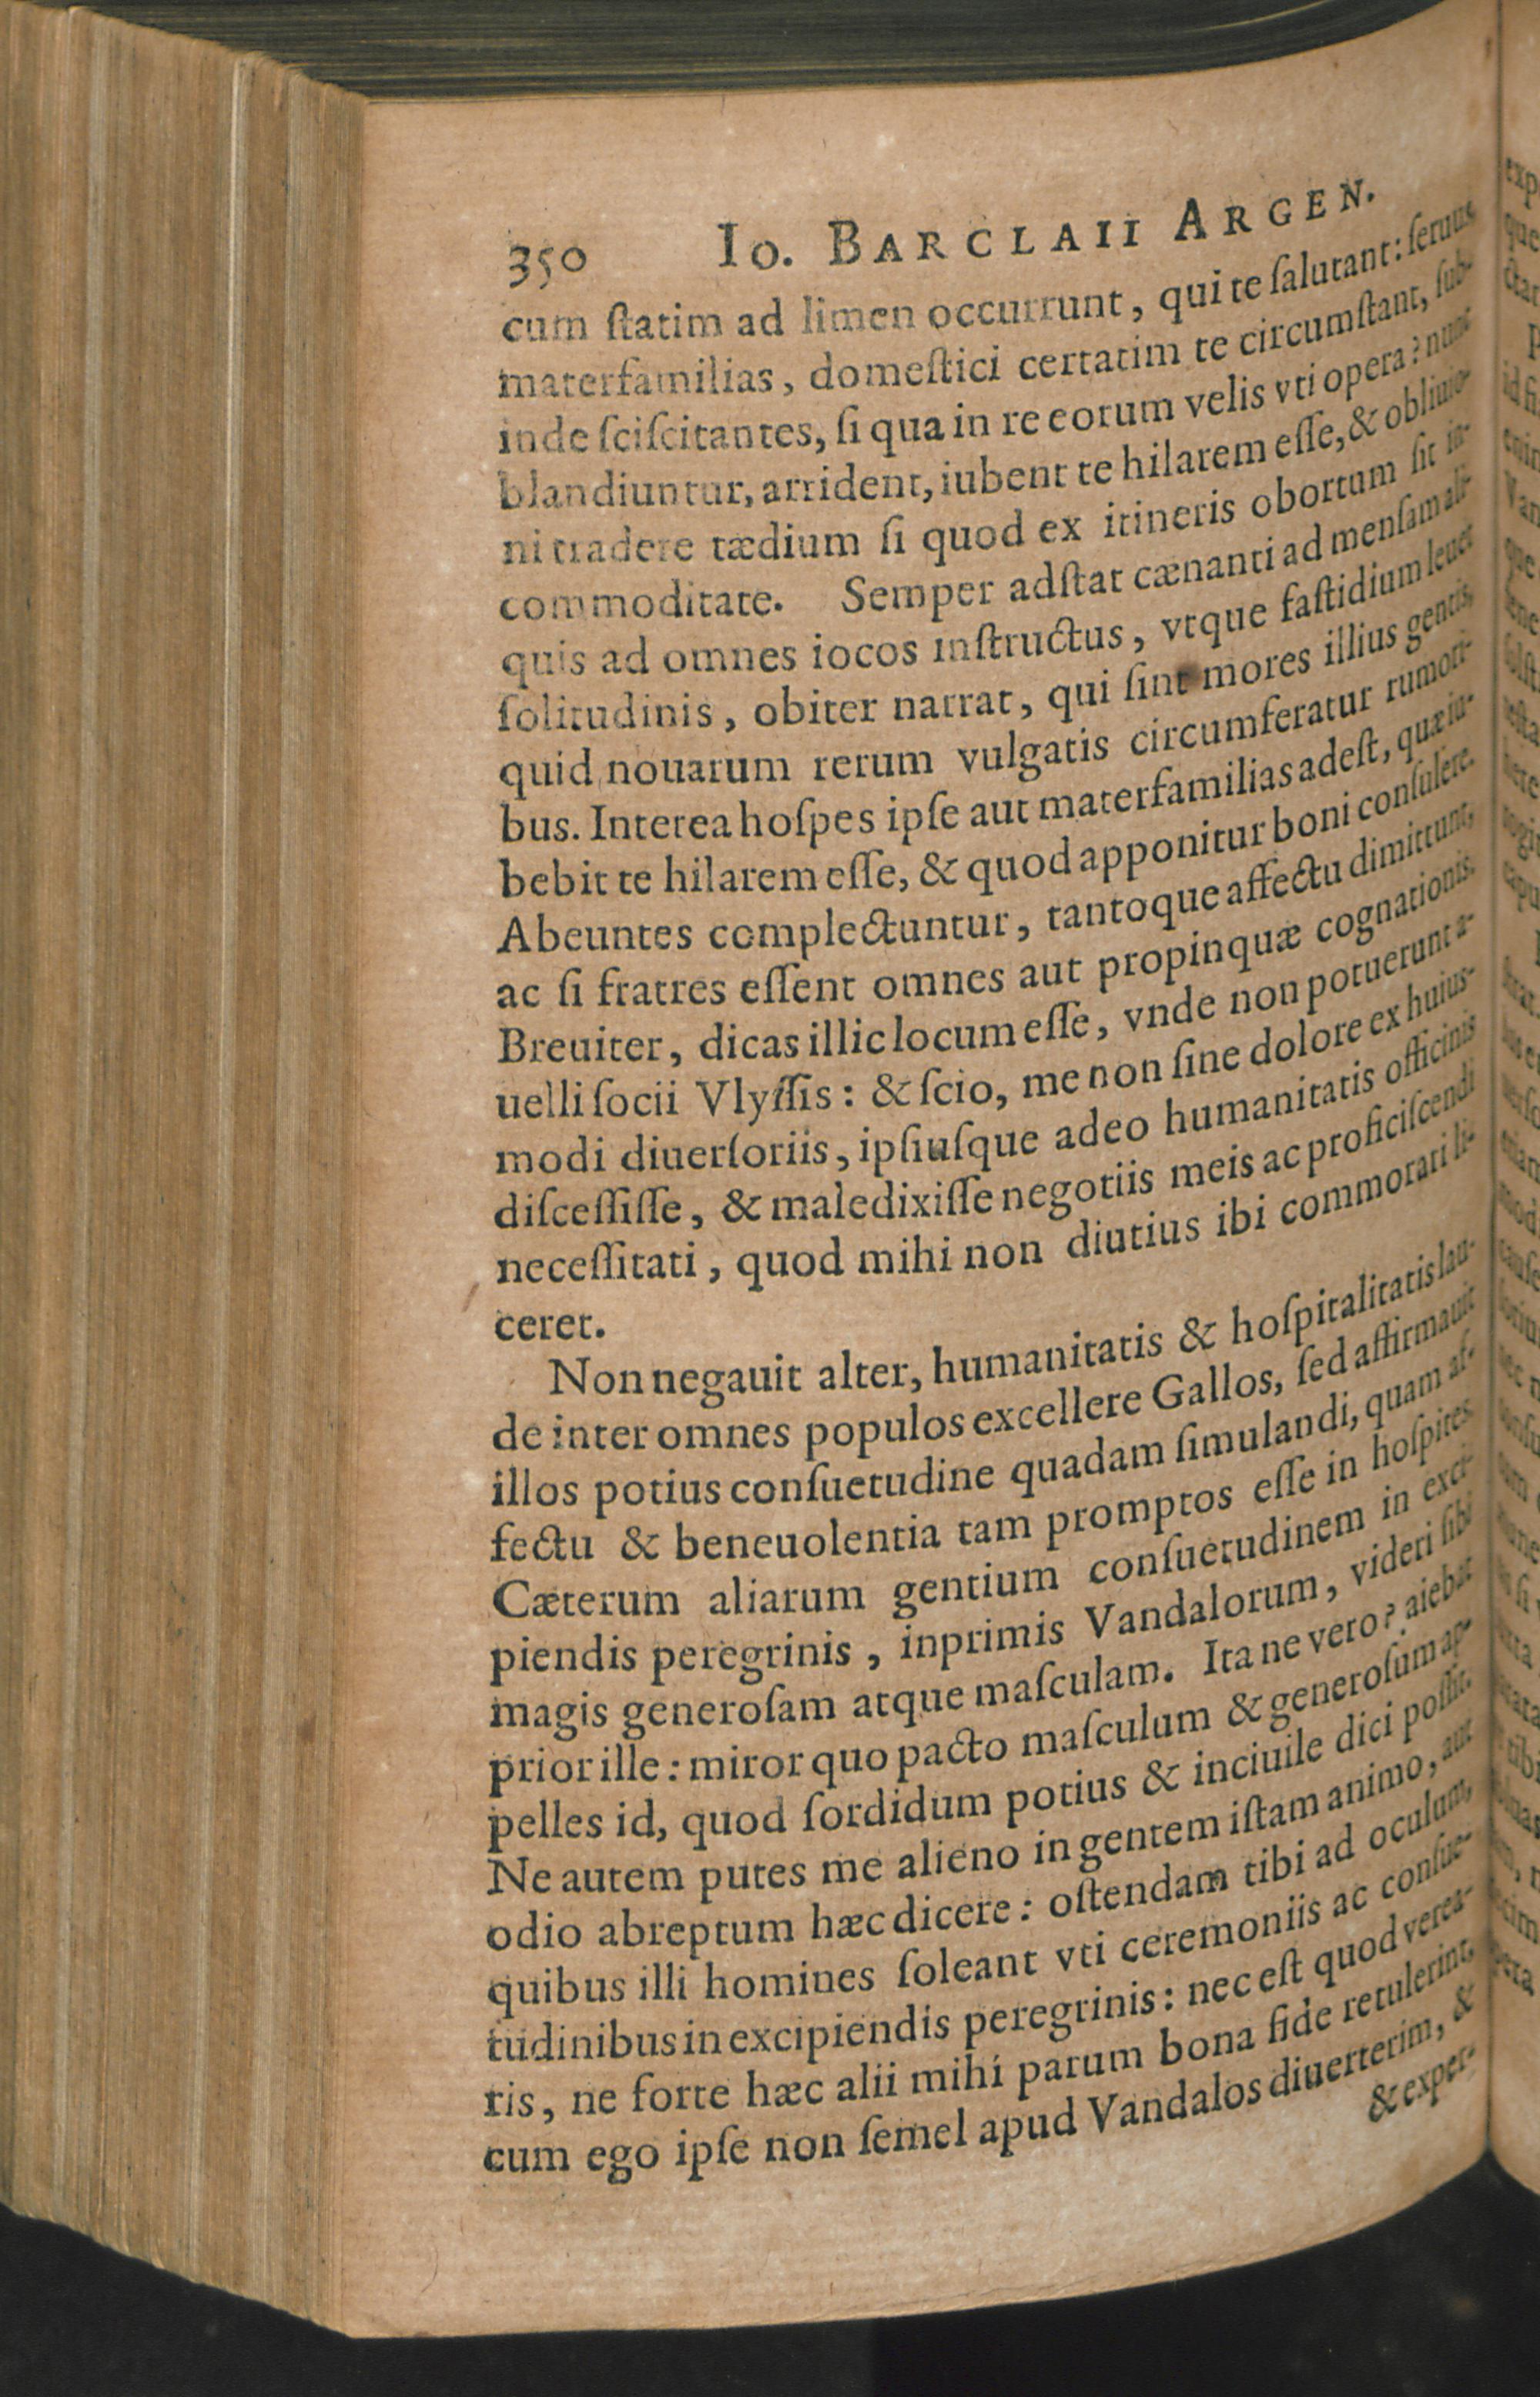 350 Io. BARCLAII ARGEN.
cum ſtatim ad limen occurrunt, qui te ſalutant: ſeruus
materfamilias, domeſtici certatim te circumſtant, ſub-
inde ſciſcitantes, ſi qua in re eorum velis vti opera? nunc
blandiuntur, arrident, iubent te hilarem eſſe, & obliuio-
ni tradere tædium ſi quod ex itineris obortum ſit in-
commoditate. Semper adſtat cænanti ad menſam ali-
quis ad omnes iocos inſtructus, vtque faſtidium leuet
ſolitudinis, obiter narrat, qui ſint mores illius gentis,
quid nouarum rerum vulgatis circumferatur rumori-
bus. Interea hoſpes ipſe aut materfamilias adeſt, quæ iu-
bebit te hilarem eſſe, & quod apponitur boni conſulere.
Abeuntes complectuntur, tantoque affectu dimittunt,
ac ſi fratres eſſent omnes aut propinquæ cognationis.
Breuiter, dicas illic locum eſſe, vnde non potuerunt a-
uelli ſocii Vlyſſis: & ſcio, me non ſine dolore ex huius-
modi diuerſoriis, ipſiuſque adeo humanitatis officinis
diſceſſiſſe, & maledixiſſe negotiis meis ac proficiſcendi
neceſſitati, quod mihi non diutius ibi commorari li-
ceret.
Non negauit alter, humanitatis & hoſpitalitatis lau-
de inter omnes populos excellere Gallos, ſed affirmauit
illos potius conſuetudine quadam ſimulandi, quam af-
fectu & beneuolentia tam promptos eſſe in hoſpites
Cæterum aliarum gentium conſuetudinem in exci-
piendis peregrinis, inprimis Vandalorum, videri ſibi
magis generoſam atque maſculam. Ita ne vero? aiebat
prior ille: miror quo pacto maſculum & generoſum ap-
pelles id, quod ſordidum potius & inciuile dici poſſit.
Ne autem putes me alieno in gentem iſtam animo, aut
odio abreptum hæc dicere: oſtendam tibi ad oculum,
quibus illi homines ſoleant vti ceremoniis ac conſue-
tudinibus in excipiendis peregrinis: nec eſt quod verea-
ris, ne forte hæc alii mihi parum bona fide retulerint,
cum ego ipſe non ſemel apud Vandalos diuerterim, &
& exper-